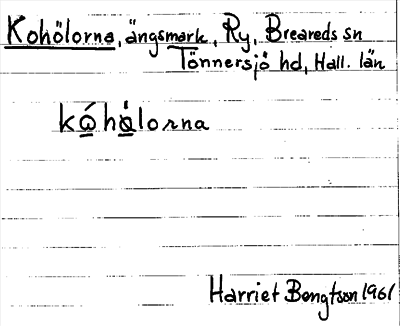 Kohölorna, ängsmark, Ry, Breareds sn
Tönnersjö hd, Hall. län
kǫ́hǫ̀lorna
Harriet Bengtson 1961